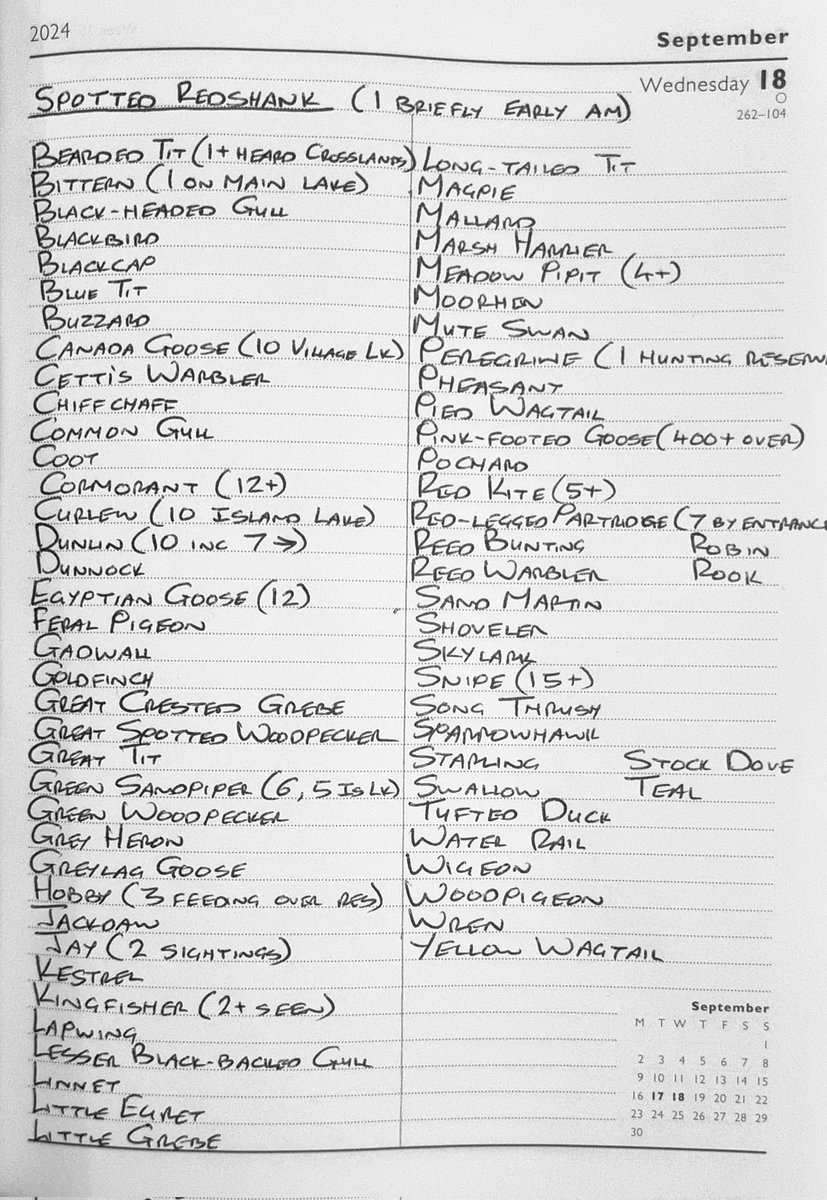 2024
September
Wednesday 18
262–104
SPOTTED REDSHANK (1 BRIEFLY EARLY AM)
BEARDED TIT (1+ HEARD CROSSLANDS)
BITTERN (1 ON MAIN LAKE)
BLACK-HEADED GULL
BLACKBIRD
BLACKCAP
BLUE TIT
BUZZARD
CANADA GOOSE (10 VILLAGE LK)
CETTI'S WARBLER
CHIFFCHAFF
COMMON GULL
COOT
CORMORANT (12+)
CURLEW (10 ISLAND LAKE)
DUNLIN (10 INC 7 →)
DUNNOCK
EGYPTIAN GOOSE (12)
FERAL PIGEON
GADWALL
GOLDFINCH
GREAT CRESTED GREBE
GREAT SPOTTED WOODPECKER
GREAT TIT
GREEN SANDPIPER (6, 5 IS LK)
GREEN WOODPECKER
GREY HERON
GREYLAG GOOSE
HOBBY (3 FEEDING OVER RES)
JACKDAW
JAY (2 SIGHTINGS)
KESTREL
KINGFISHER (2+ SEEN)
LAPWING
LESSER BLACK-BACKED GULL
LINNET
LITTLE EGRET
LITTLE GREBE
LONG-TAILED TIT
MAGPIE
MALLARD
MARSH HARRIER
MEADOW PIPIT (4+)
MOORHEN
MUTE SWAN
PEREGRINE (1 HUNTING RESERV
PHEASANT
PIED WAGTAIL
PINK-FOOTED GOOSE (400+ OVER)
POCHARD
RED KITE (5+)
RED-LEGGED PARTRIDGE (7 BY ENTRANCE
REED BUNTING ROBIN
REED WARBLER ROOK
SAND MARTIN
SHOVELER
SKYLARK
SNIPE (15+)
SONG THRUSH
SPARROWHAWK
STARLING STOCK DOVE
SWALLOW TEAL
TUFTED DUCK
WATER RAIL
WIGEON
WOODPIGEON
WREN
YELLOW WAGTAIL
September
M T W T F S S
1
2 3 4 5 6 7 8
9 10 11 12 13 14 15
16 17 18 19 20 21 22
23 24 25 26 27 28 29
30